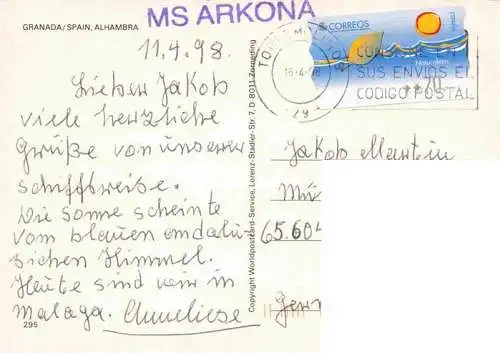 GRANADA/SPAIN, ALHAMBRA
MS ARKONA
11.4.98.
Lieber Jakob
viele herzliche
Grüße von unserer
schiffsreise.
Die sonne scheinte
vom blauen andalu
sischen Himmel.
Heute sind wir in
Malaga. Anneliese
295
Copyright Worldpostcard-Service, Lorenz-Stadler-Str. 7, D 8011 Zorneding
CORREOS
Naturaleza
CONSIGNE EN
SUS ENVIOS EL
CODIGO POSTAL
Jakob Martin
Mü
65.604
Gerr